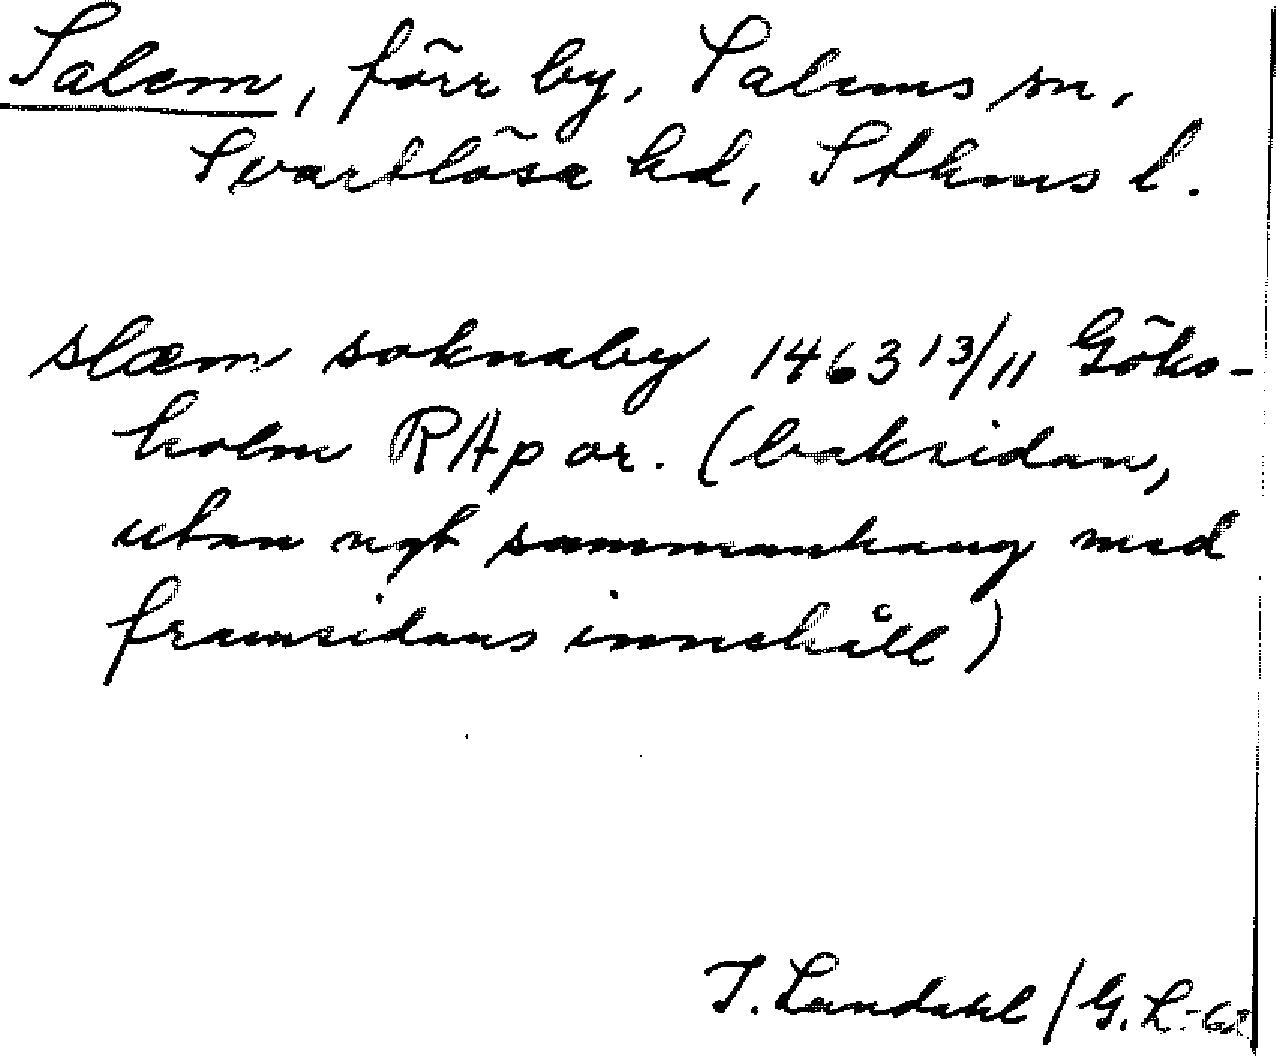 Salem, förr by, Salems sn,
Svartlösa hd, Sthms l.
slæm soknaby 1463 13/11 Göks-
holm RAp or. (baksidan,
utan ngt sammanhang med
framsidans innehåll)
I. Landahl / G. L. -62